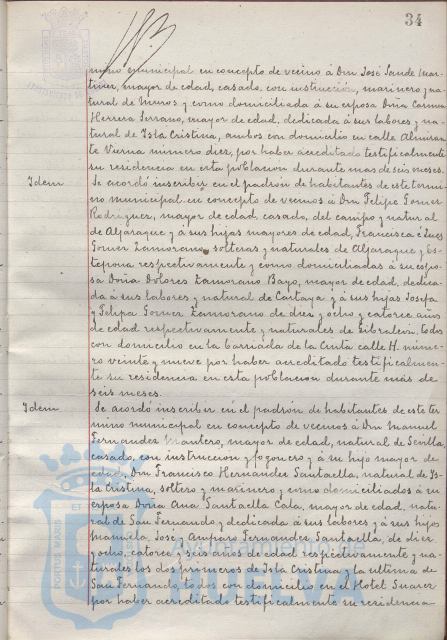 34
mino municipal en concepto de vecino á Don José Sande Mar-
tinez, mayor de edad, casado, con instrucción, marinero y na-
tural de Muros y como domiciliada á su esposa Doña Carmen
Herrera Serrano, mayor de edad, dedicada á sus labores y na-
tural de Isla Cristina, ambos con domicilio en calle Almiran
te Vierna número diez, por haber acreditado testificalmente
su residencia en esta poblacion durante mas de seis meses.
Idem
Se acordó inscribir en el padrón de habitantes de este termi-
no municipal en concepto de vecinos á Don Felipe Gomez
Rodriguez, mayor de edad, casado, del campo y natural
de Aljaraque y á sus hijas mayores de edad, Francisca é Ines
Gomez Zamorano, solteras y naturales de Aljaraque y Es-
tepona respectivamente y como domiciliadas á su espo-
sa Doña Dolores Zamorano Bayo, mayor de edad, dedica-
da á sus labores y natural de Cartaya y á sus hijas Josefa
y Felipa Gomez Zamorano de diez y ocho y catorce años
de edad respectivamente y naturales de Gibraleon, todos
con domicilio en la barriada de la Cinta calle H. núme-
ro veinte y nueve por haber acreditado testificalmen-
te su residencia en esta poblacion durante más de
seis meses.
Idem
Se acordó inscribir en el padrón de habitantes de este ter
mino municipal en concepto de vecinos á Don Manuel
Fernandez Mantero, mayor de edad, natural de Sevilla,
casado, con instruccion y fogonero y á su hijo mayor de
edad, Don Francisco Hernandez Santaella, natural de Is-
la Cristina, soltero y marinero y como domiciliados á su
esposa Doña Ana Santaella Cala, mayor de edad, natu-
ral de San Fernando y dedicada á sus labores y á sus hijos
Manuela, José y Amparo Fernandez Santaella, de diez
y ocho, catorce y seis años de edad respectivamente y na-
turales los dos primeros de Isla Cristina y la ultima de
San Fernando, todos con domicilio en el Hotel Suarez
por haber acreditado testificalmente su residencia
PORTUS MARIS
HUELVA